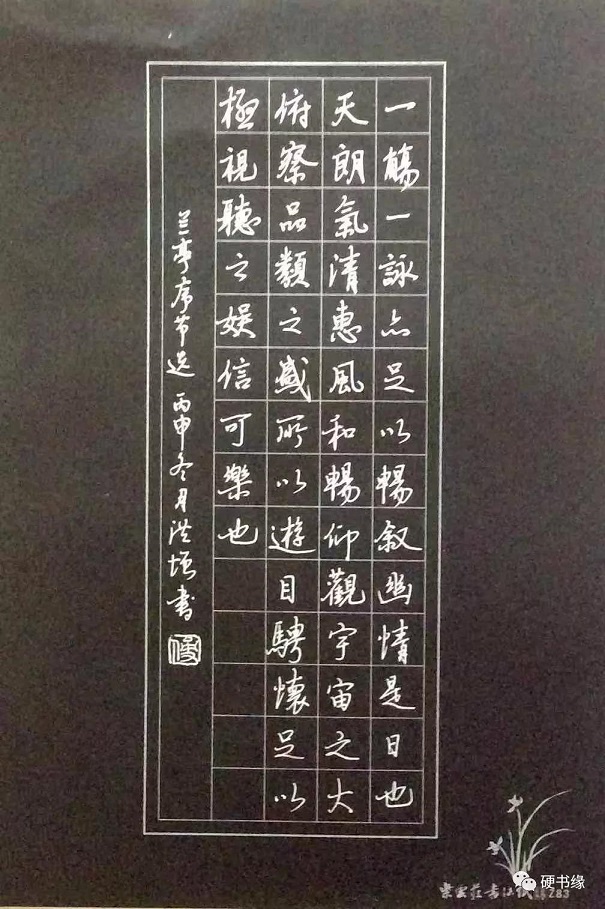 一觴一詠亦足以暢叙幽情是日也
天朗氣清惠風和暢仰觀宇宙之大
俯察品類之盛所以遊目騁懷足以
極視聽之娱信可樂也
兰亭序节选 丙申冬月洪垣書
硬书缘